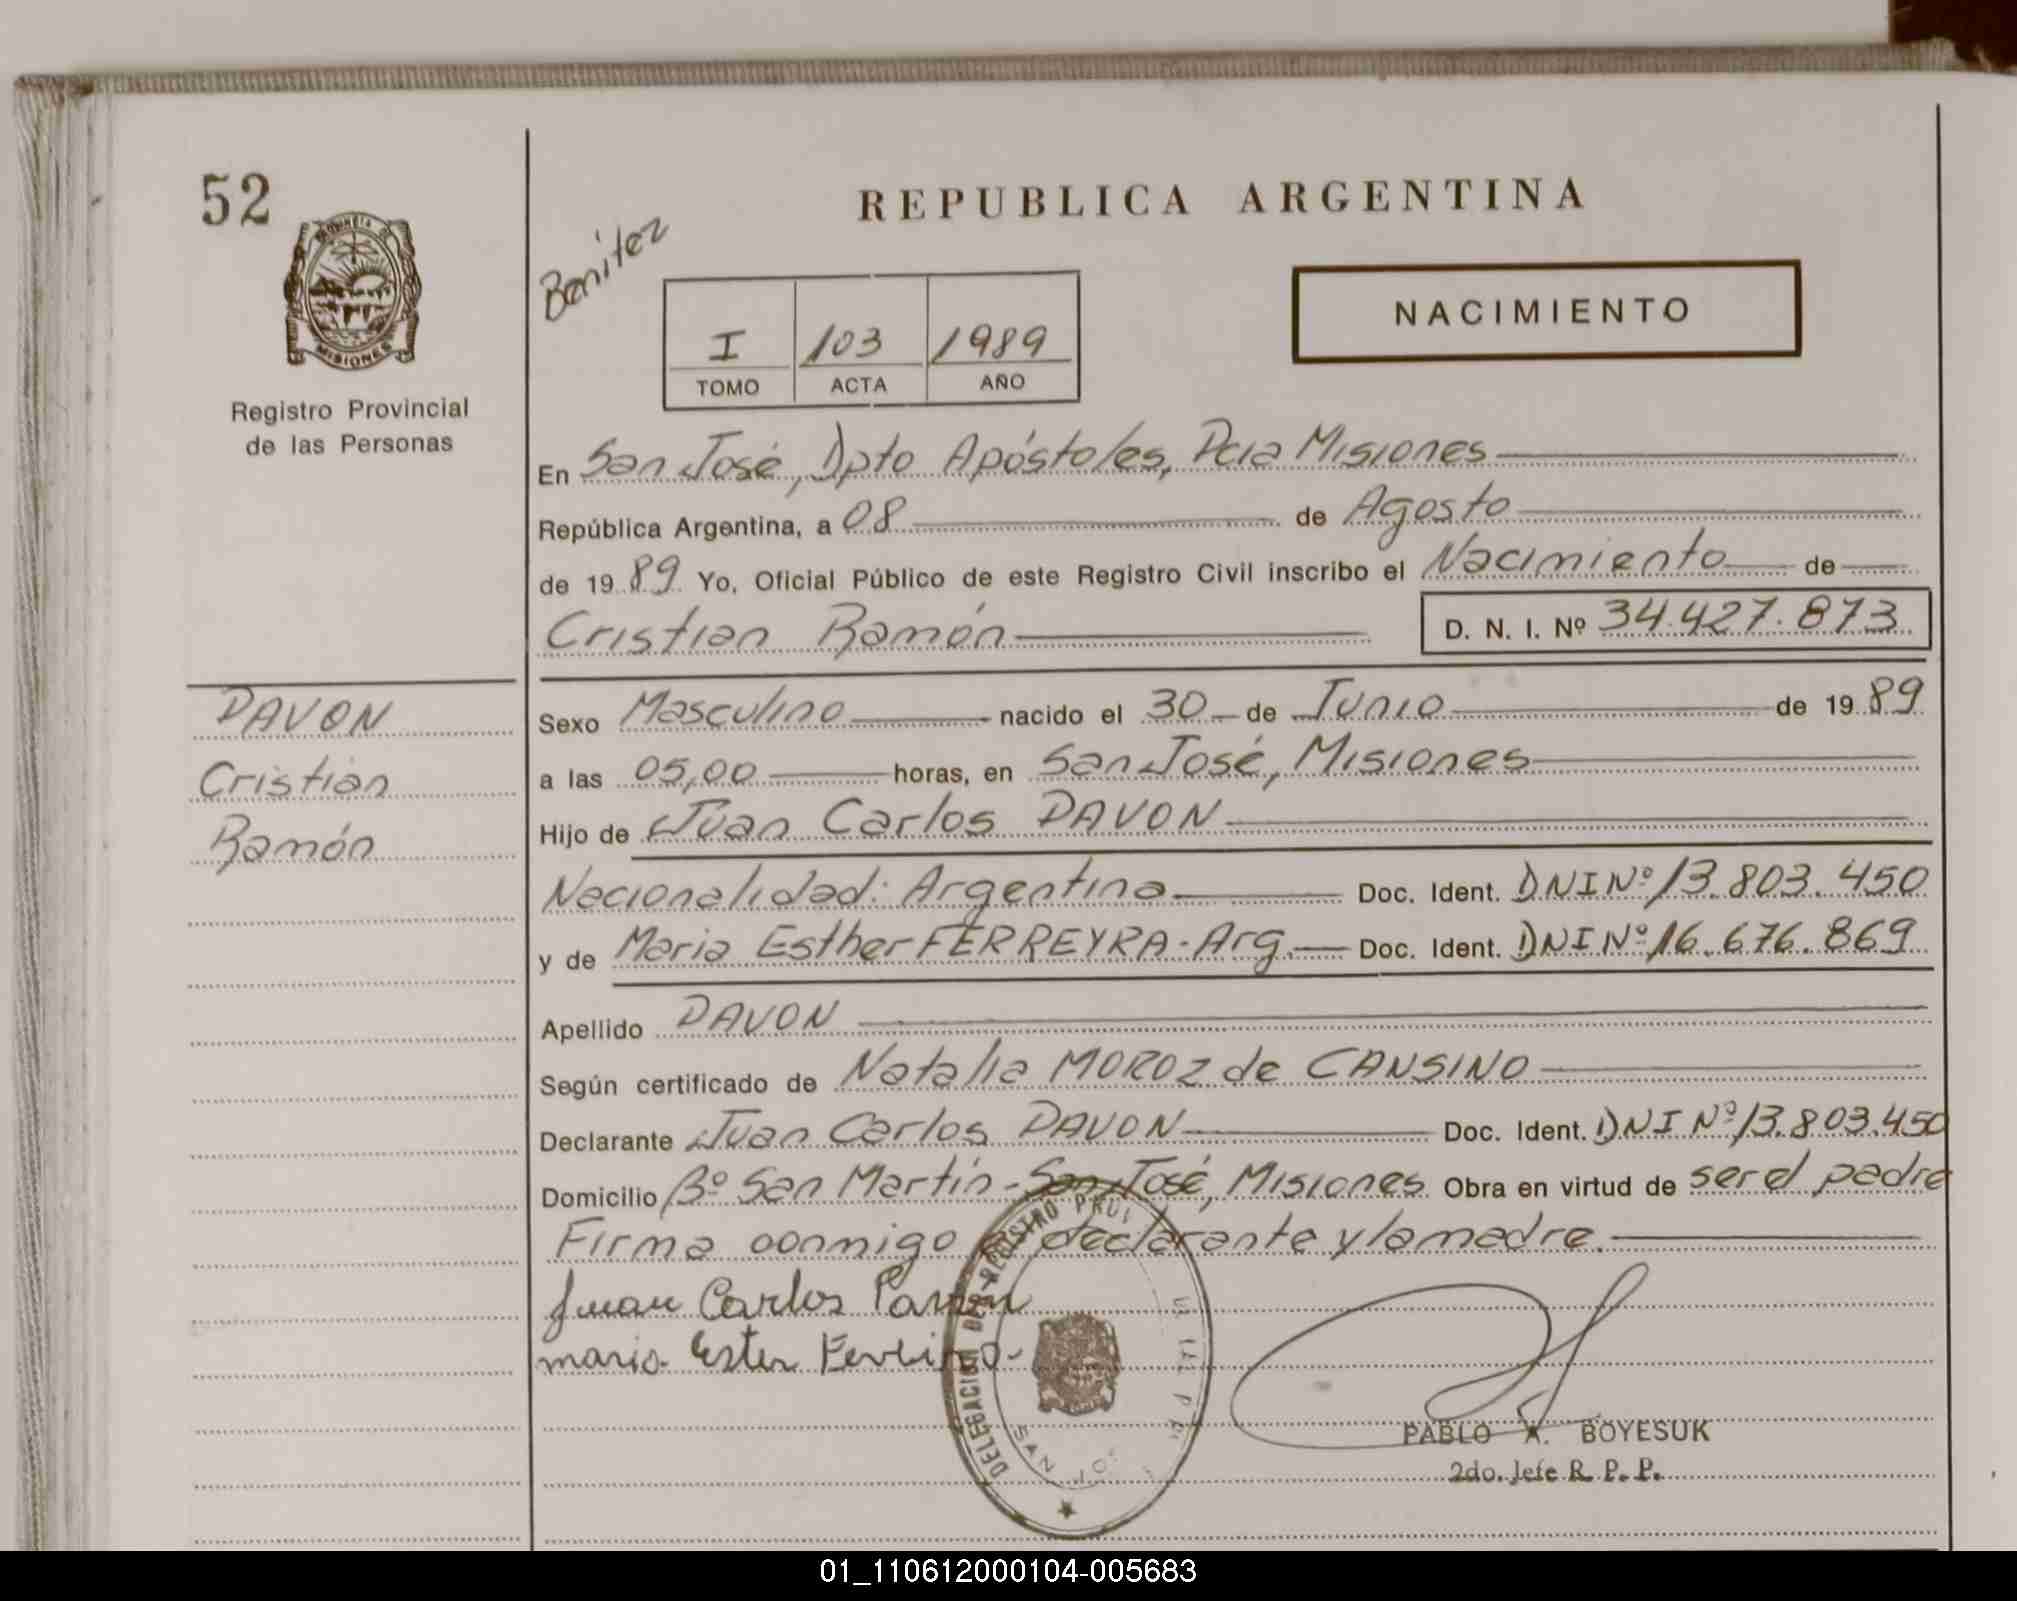 52
PROVINCIA DE
MISIONES
Registro Provincial
de las Personas
DAVON
Cristian
Ramón
REPUBLICA ARGENTINA
Benitez
NACIMIENTO
I 103 1989
TOMO ACTA AÑO
En San José, Dpto Apóstoles, Pcia Misiones
República Argentina, a 08 de Agosto
de 19 89 Yo, Oficial Público de este Registro Civil inscribo el Nacimiento de
Cristian Ramón D. N. I. Nº 34.427.873
Sexo Masculino nacido el 30 de Junio de 19 89
a las 05,00 horas, en San José, Misiones
Hijo de Juan Carlos DAVON
Nacionalidad: Argentina Doc. Ident. DNI Nº 13.803.450
y de Maria Esther FERREYRA - Arg. Doc. Ident. DNI Nº 16.676.869
Apellido DAVON
Según certificado de Natalia MOROZ de CANSINO
Declarante Juan Carlos DAVON Doc. Ident. DNI Nº 13.803.450
Domicilio Bº San Martín - San José, Misiones Obra en virtud de ser el padre
Firma conmigo el declarante y la madre.
Juan Carlos
maria Ester
DELEGACION DEL REGISTRO
SAN JOSE
PABLO A. BOYESUK
2do. Jefe R. P. P.
01_110612000104-005683